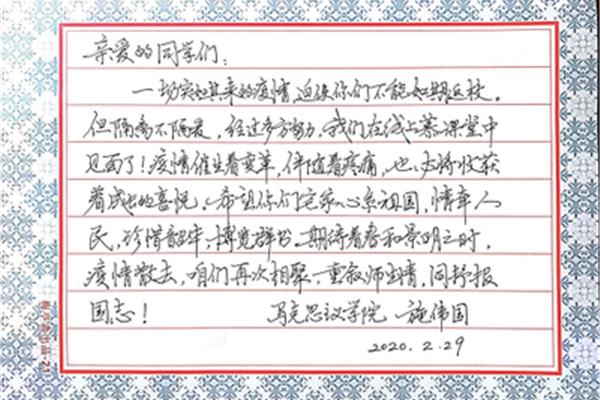 亲爱的同学们：
一场突如其来的疫情迫使你们不能如期返校。
但隔离不隔爱，经过多方努力，我们在线上慕课堂中
见面了！疫情催生着变革，伴随着疼痛，也必将收获
着成长的喜悦。希望你们宅家心系祖国，情牵人
民，珍惜韶华，博览群书。期待着春和景明之时，
疫情散去，咱们再次相聚，重叙师生情，同抒报
国志！ 马克思主义学院 施伟国
2020.2.29